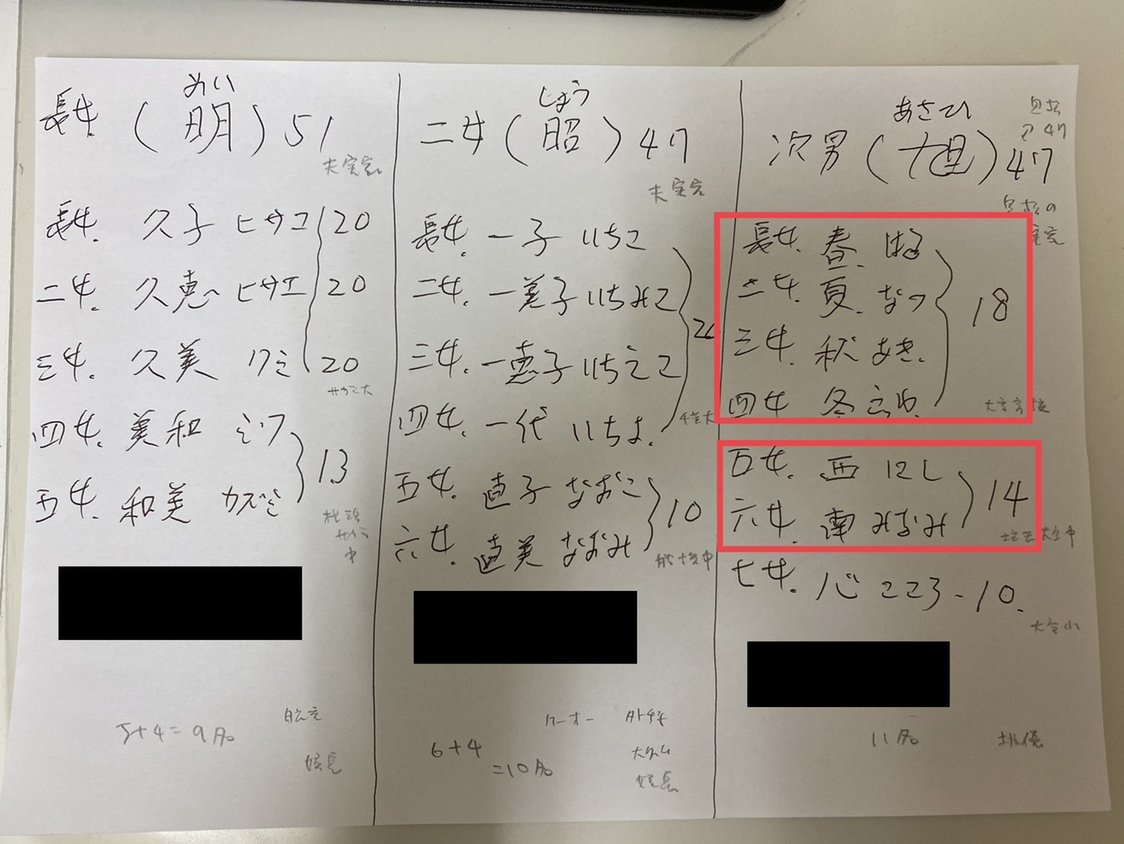 めい
長女 (明) 51
夫実家
長女. 久子 ヒサコ 20
二女. 久恵 ヒサエ 20
三女. 久美 クミ 20
四女. 美和 ミワ
五女. 和美 カズミ
13
中
5+4=9人
しょう
二女 (昭) 47
夫実家
長女. 一子 いちこ
二女. 一美子 いちみこ
三女. 一恵子 いちえこ
四女. 一代 いちよ.
五女. 直子 なおこ
六女. 直美 なおみ
10
6+4
=10人
あさひ
次男 (旭) 47
長女. 春. はる
二女. 夏. なつ
三女. 秋 あき.
四女. 冬 ふゆ
18
五女. 西 にし
六女. 南 みなみ
14
七女. 心 ココロ - 10.
11人